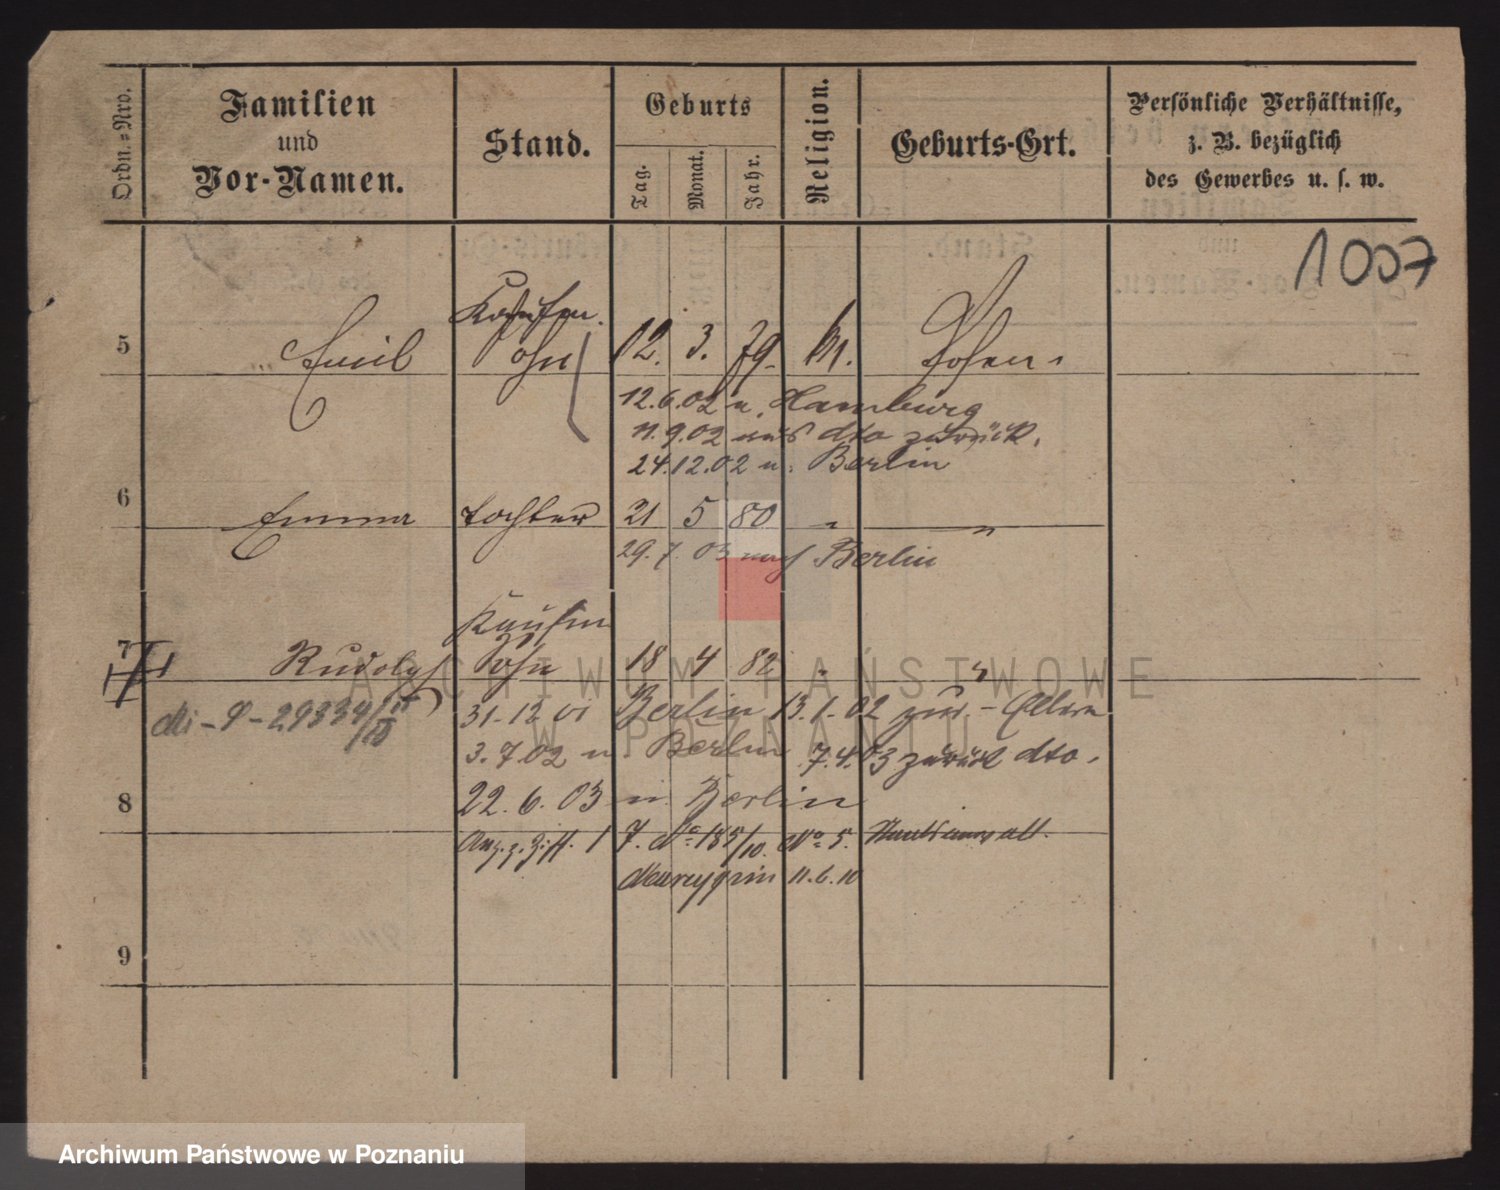 Ordn.-Nro.
Familien
und
Vor-Namen.
Stand.
Geburts
Tag.
Monat.
Jahr.
Religion.
Geburts-Ort.
Persönliche Verhältnisse,
z. B. bezüglich
des Gewerbes u. s. w.
1007
Kaufm.
5 Emil Sohn 12. 3. 79. M. Posen
12.6.02 n. Hamburg
11.9.02 aus dto zurück.
24.12.02 n. Berlin
6 Emma Tochter 21 5 80 " "
29.7.03 nach Berlin
Kaufm
7 Rudolph Sohn 18 4 82 " "
31-12 01 Berlin 13.1-02 zur - Eltern
3.7.02 n. Berlin 7.4.03 zurück dto.
8 22.6.03 n. Berlin
7. No 185/10. No 5.
11.6.10
9
ARCHIWUM PAŃSTWOWE
W POZNANIU
Archiwum Państwowe w Poznaniu